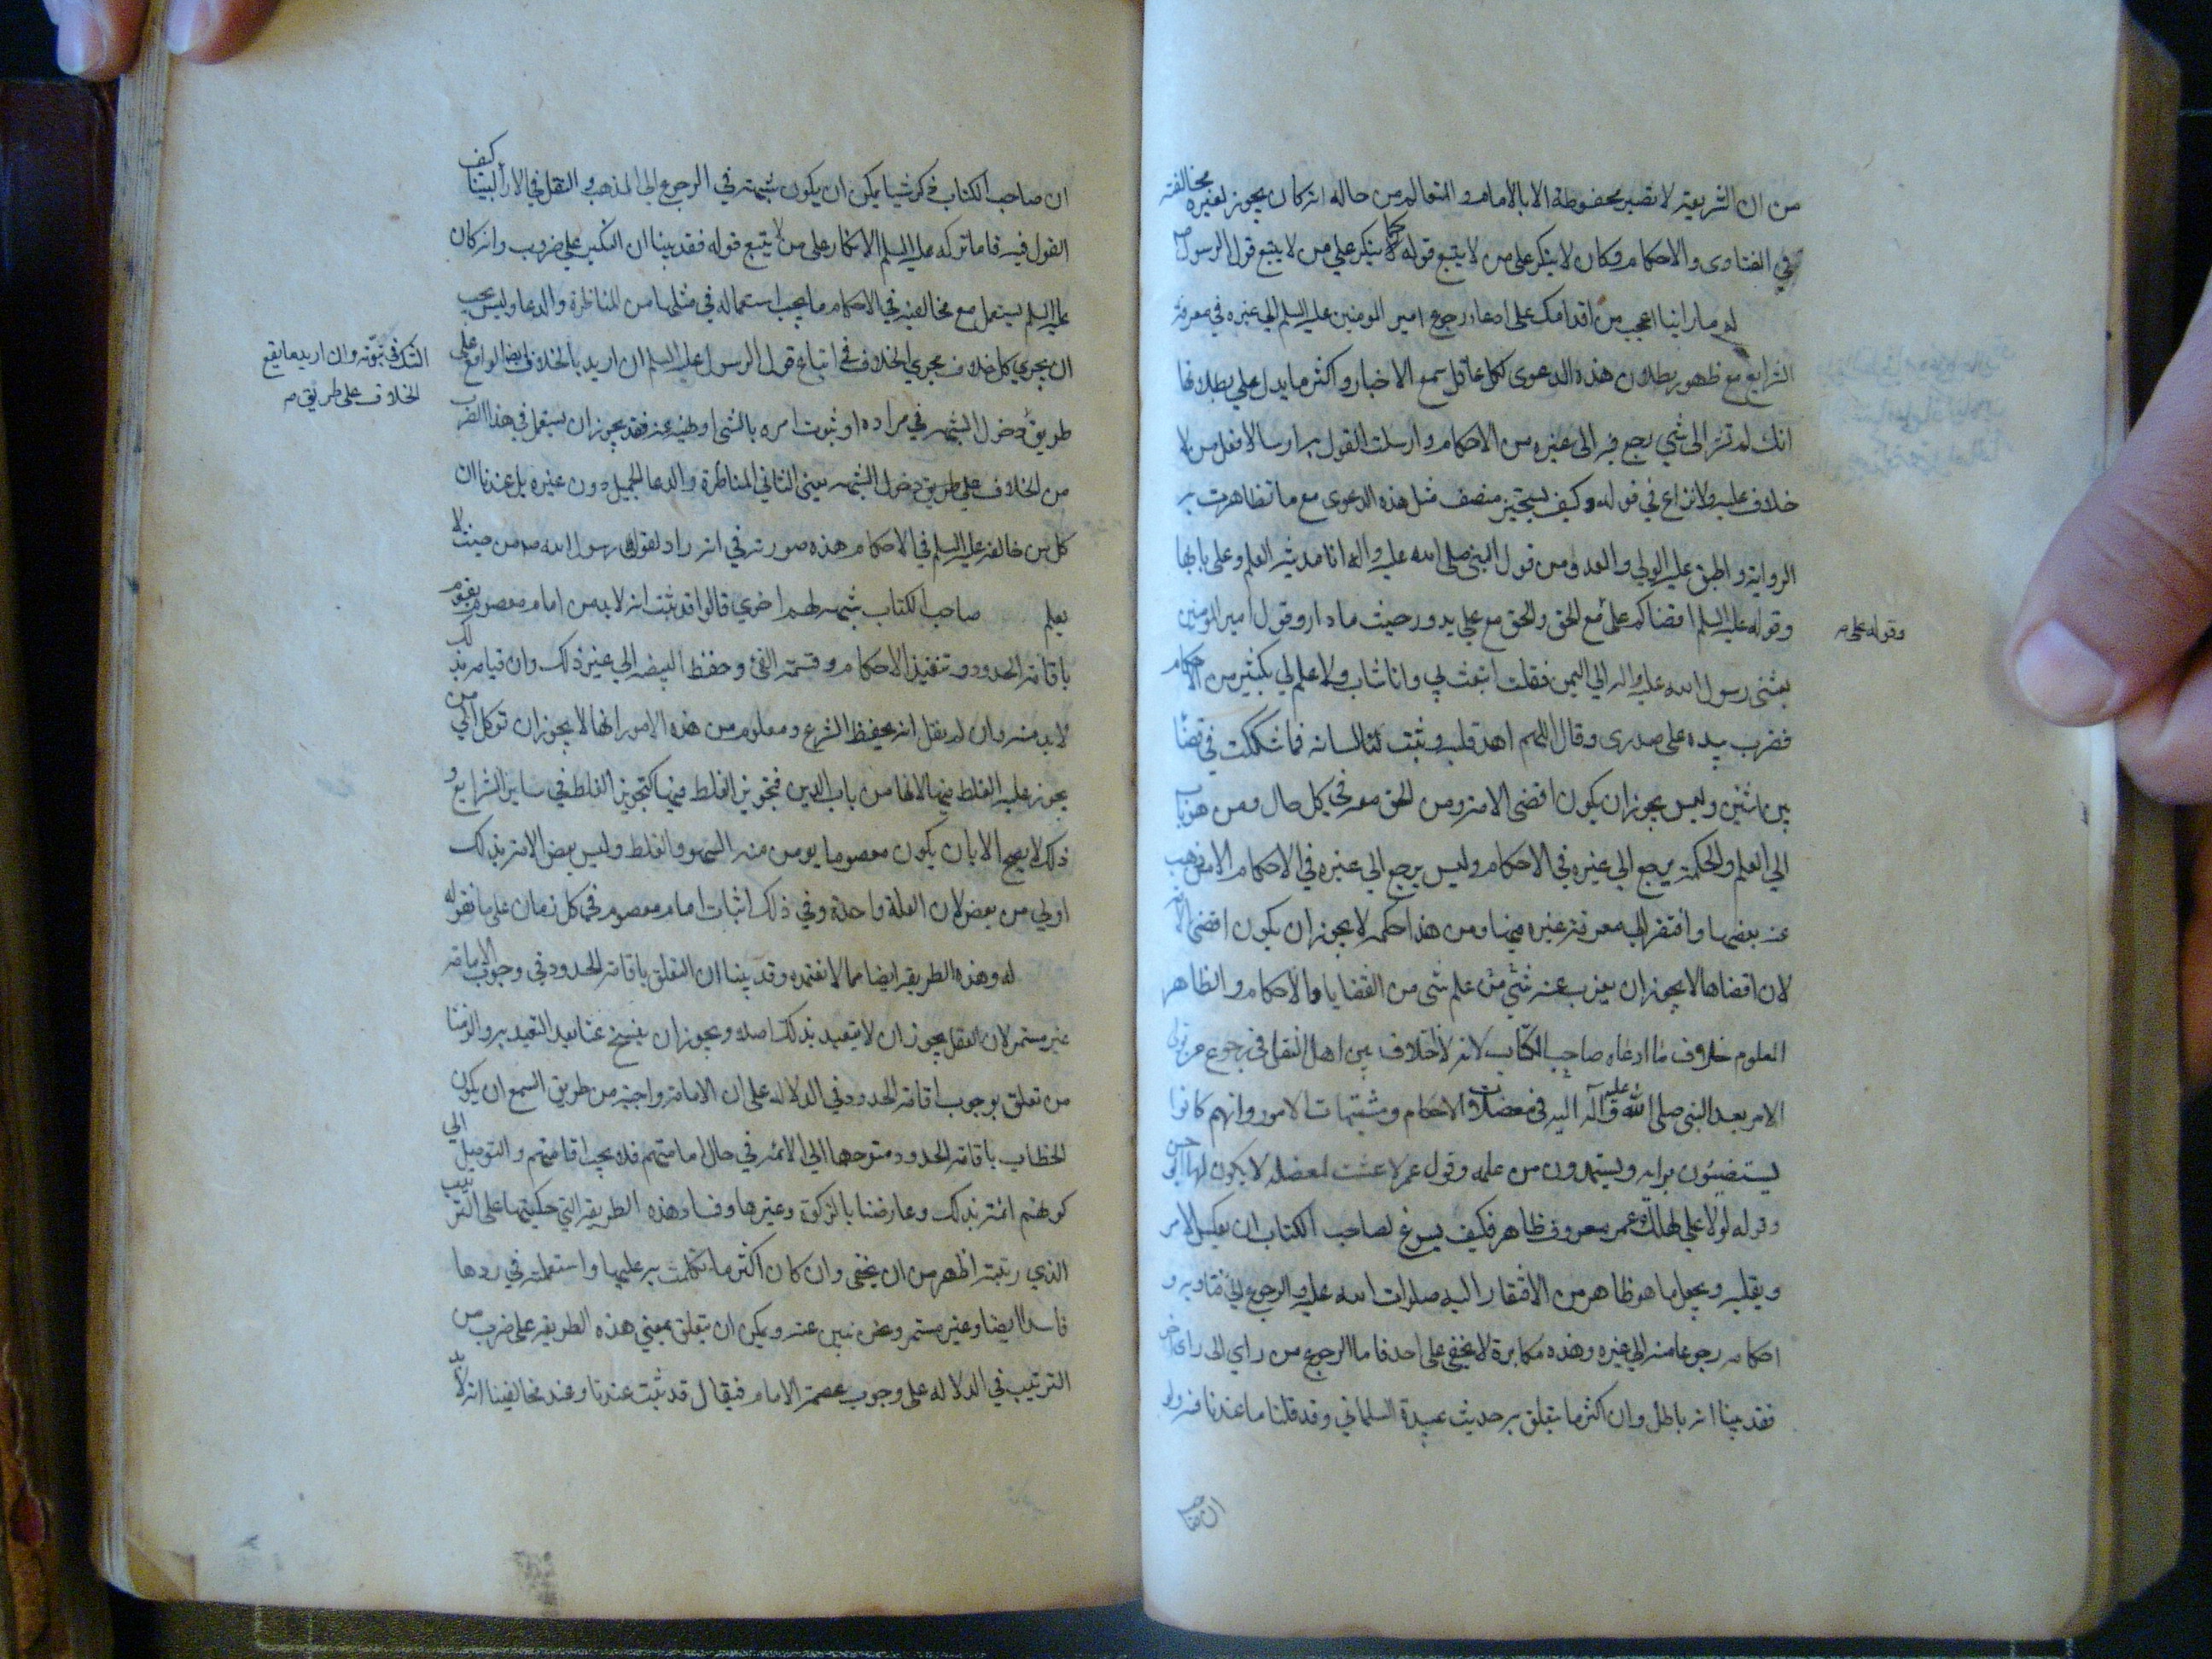 من ان الشريعة لا تصير محفوظة الا بالامام و المتعالم من حاله انه كان يجوز لغيره مخالفته
في الفتاوى والاحكام وكان لا ينكر على من لا يتبع قوله كما ينكر علي من لا يتبع قول الرسول ص
له ما راينا اعجب من اقدامك على ادعاء رجوع امير المومنين عليه السلم الي غيره في معرفة
الشرايع مع ظهور بطلان هذه الدعوى لكل عاقل سمع الاخبار و اكثر ما يدل علي بطلانها
انك لم تشر الى شي رجع فيه الى غيره من الاحكام وارسلت القول به ارسالا فعل من لا
خلاف عليه ولا نزاع في قوله وكيف يستجيز منصف مثل هذه الدعوى مع ما تظاهرت به
الرواية و اطبق عليه الولي والعدو من قول النبي صلى الله عليه واله انا مدينة العلم وعلي بابها
وقوله عليه السلم اقضاكم علي مع الحق والحق مع علي يدور حيث ما دار وقول امير المومنين
وقوله علي مـ
بعثنى رسول الله عليه واله الي اليمن فقلت اتبعث بي وانا شاب ولا علم لي بكثير من الاحكام
فضرب بيده على صدرى وقال اللهم اهد قلبه و ثبت لسانه فما شككت في قضا
بين اثنين وليس يجوز ان يكون اقضى الامة ومن الحق معه في كل حال ومن هو باب
الي العلم والحكمة يرجع الي غيره في الاحكام وليس يرجع الي غيره في الاحكام الا من ذهب
عنه بعضها وافتقر الي معرفة غيره فيها ومن هذا حكمه لا يجوز ان يكون اقضى الامة
لان اقضاها لا يجوز ان يعزب عنه شي من علم شى من القضايا والاحكام و الظاهر
المعلوم خلاف ما ادعاه صاحب الكتاب لانه لا خلاف بين اهل النقل في رجوع من تولى
الامر بعد النبى صلى الله عليه وآله اليه في معضلات الاحكام و مشتبهات الامور وانهم كانوا
يستضيئون برايه ويستمدون من علمه وقول عمر لا عشت لمعضلة لا يكون لها ابو حسن
وقوله لولا علي لهلك عمر معروف ظاهر فكيف يسوغ لصاحب الكتاب ان يعكس الامر
و يقلبه ويجعل ما هو ظاهر من الافتقار اليه صلوات الله عليه والرجوع الي فتاويه و
احكامه رجوعا منه الي غيره وهذه مكابرة لا تخفى على احد فاما الرجوع من راي الى راى اخر
فقد بينا انه باطل وان اكثر ما يتعلق به حديث عبيدة السلماني وقد قلنا ما عندنا فيه ولو
ان صاحب
ان صاحب الكتاب ذكر شيا يمكن ان يكون شبهة في الرجوع الي المذهب و التنقل في الارا لبينا كيف
القول فيه فاما تركه عليه السلم الانكار على من لا يتبع قوله فقد بينا ان النكير علي ضروب وانه كان
عليه السلم يستعمل مع مخالفيه في الاحكام ما يجب استعماله في مثلها من المناظرة والدعا وليس يجب
ان يجري كل خلاف مجري الخلاف في اتباع قول الرسول عليه السلم ان اريد بالخلاف ايضا الواقع على
الشك في نبوّته وان اريد ما يقع
الخلاف على طريق مـ
طريق دخول الشبهة في مراده او ثبوت امره بالشى او نهيه عنه فقد يجوز ان يستعمل في هذا الضرب
من الخلاف علي طريق دخول الشبهة يعنى الثاني المناظرة والدعا الجميل دون غيره بل عندنا ان
كل من خالفه عليه السلم في الاحكام هذه صورته في انه راد لقول رسول الله ص من حيث لا
يعلم صاحب الكتاب شبهة لهم اخري قالوا قد ثبت انه لا بد من امام معصوم يقوم
باقامة الحدود و تنفيذ الاحكام و قسمة الفئ و حفظ البيضة الي غير ذلك وان قيامه بذلك
لا بد منه وان لم نقل انه يحفظ الشرع و معلوم من هذه الامور انها لا يجوز ان توكل الي من
يجوز عليه الغلط فيها لانها من باب الدين فتجويز الغلط فيها كتجويز الغلط في ساير الشرايع و
ذلك لا يصح الا بان يكون معصوما يومن منه السهو والغلط وليس بعض الامة بذلك
اولي من بعض لان العلة واحدة وفي ذلك اثبات امام معصوم في كل زمان على ما نقوله
له وهذه الطريقة ايضا مما لا نعتمده وقد بينا ان التعلق باقامة الحدود في وجوب الامامة
غير مستمر لان العقل يجوز ان لا يتعبد بذلك اصلا ويجوز ان ينسخ عنا بعد التعبد به والزمنا
من تعلق بوجوب اقامة الحدود في الدلالة على ان الامامة واجبة من طريق السمع ان يكون
الخطاب باقامة الحدود متوجها الي الائمة في حال امامتهم فلا يجب اقامتهم والتوصل الي
كونهم ائمة بذلك وعارضنا بالزكوة وغيرها وفساد هذه الطريقة التي حكيتها على الترتيب
الذي رتبته اظهر من ان يخفى وان كان اكثر ما تكلمت به عليها واستعملته في ردها
فاسدا ايضا وغير مستمر ونحن نبين عنه ويمكن ان يتعلق بمعني هذه الطريقة على ضرب من
الترتيب في الدلالة على وجوب عصمة الامام فيقال قد ثبت عندنا وعند مخالفينا انه لا بد